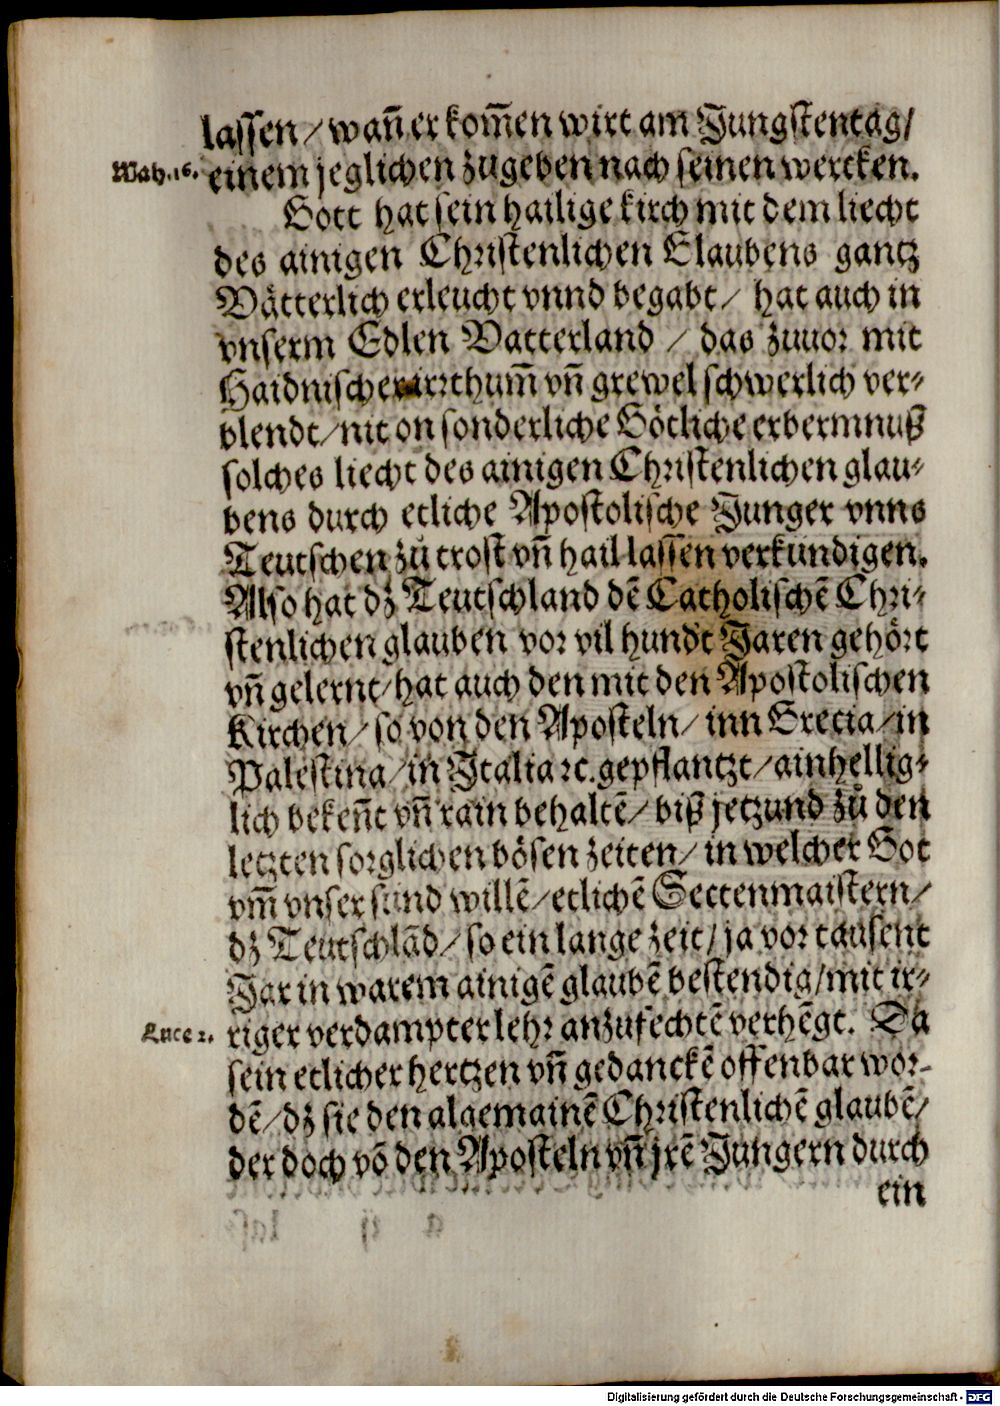 lassen/ wañ er kom̃en wirt am Jungstentag/
Math. 16. einem jeglichen zugeben nach seinen wercken.
Gott hat sein hailige kirch mit dem liecht
des ainigen Christenlichen Glaubens gantz
Vätterlich erleucht vnnd begabt/ hat auch in
vnserm Edlen Vatterland / das zuuor mit
Haidnischer irrthum̃ vñ grewel schwerlich ver-
blendt/ nit on sonderliche Götliche erbermnuß
solches liecht des ainigen Christenlichen glau-
bens durch etliche Apostolische Junger vnns
Teutschen zů trost vñ hail lassen verkundigen.
Also hat dz Teutschland dẽ Catholischẽ Chri-
stenlichen glauben vor vil hundt Jaren gehört
vñ gelernt/ hat auch den mit den Apostolischen
Kirchen/ so von den Aposteln/ inn Grecia/ in
Palestina/ in Italia ꝛc. gepflantzt/ ainhellig-
lich bekeñt vñ rain behaltẽ/ biß jetzund zů den
letzten sorglichen bösen zeiten/ in welcher Got
vm̃ vnser sünd willẽ/ etlichẽ Sectenmaistern/
dz Teutschlãd/ so ein lange zeit/ ja vor tausent
Jar in warem ainigẽ glaubẽ bestendig/ mit ir-
Luce 2. riger verdampter lehr anzufechtẽ verhẽgt. Da
sein etlicher hertzen vñ gedanckẽ offenbar wor-
dẽ/ dz sie den algemainẽ Christenlichẽ glaubẽ/
der doch võ den Aposteln vñ jrẽ Jungern durch
ein
Digitalisierung gefördert durch die Deutsche Forschungsgemeinschaft - DFG